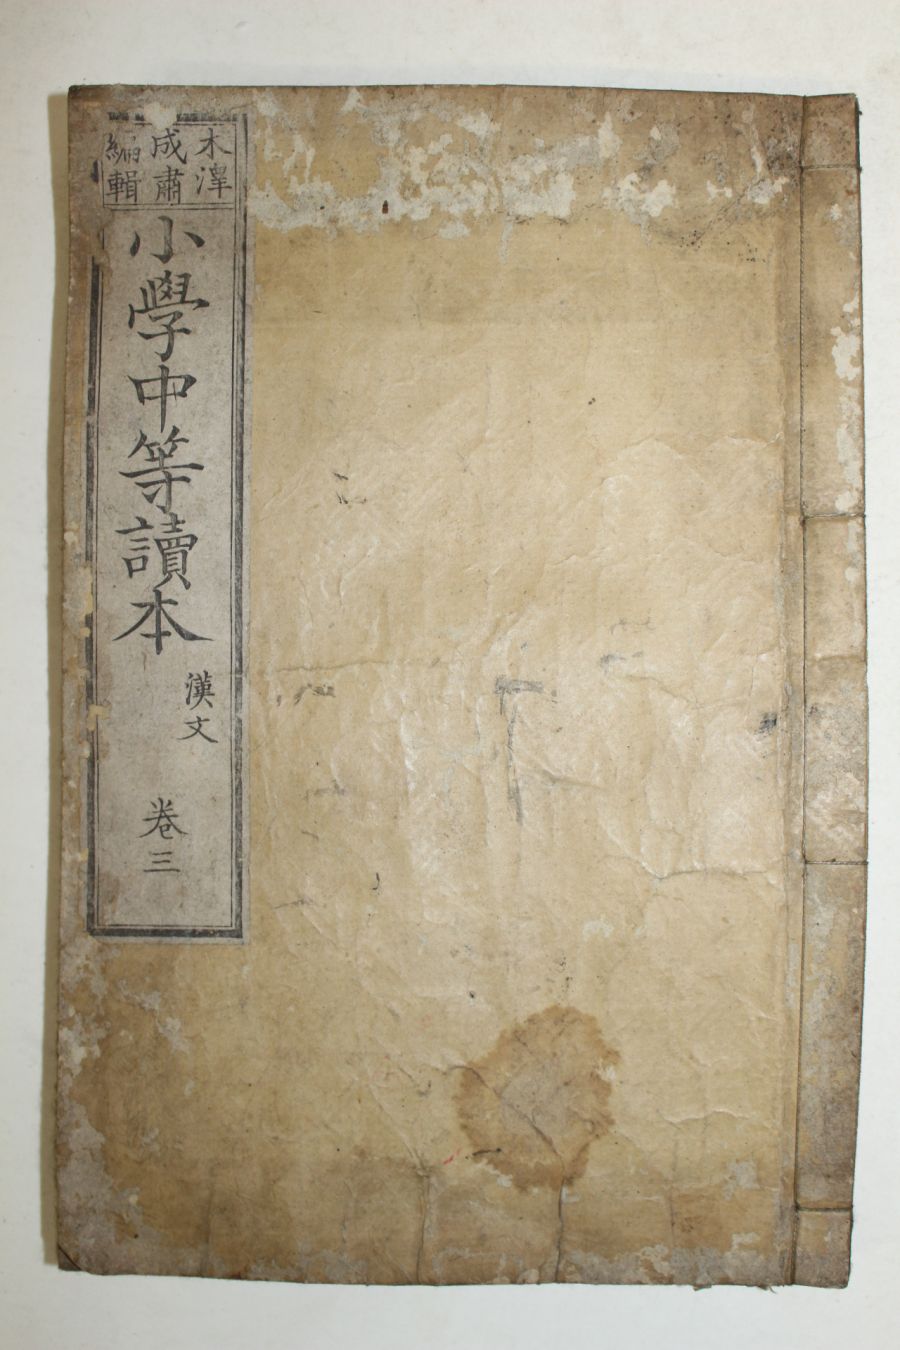 木澤
成肅
編輯
小學中等讀本
漢文
卷三